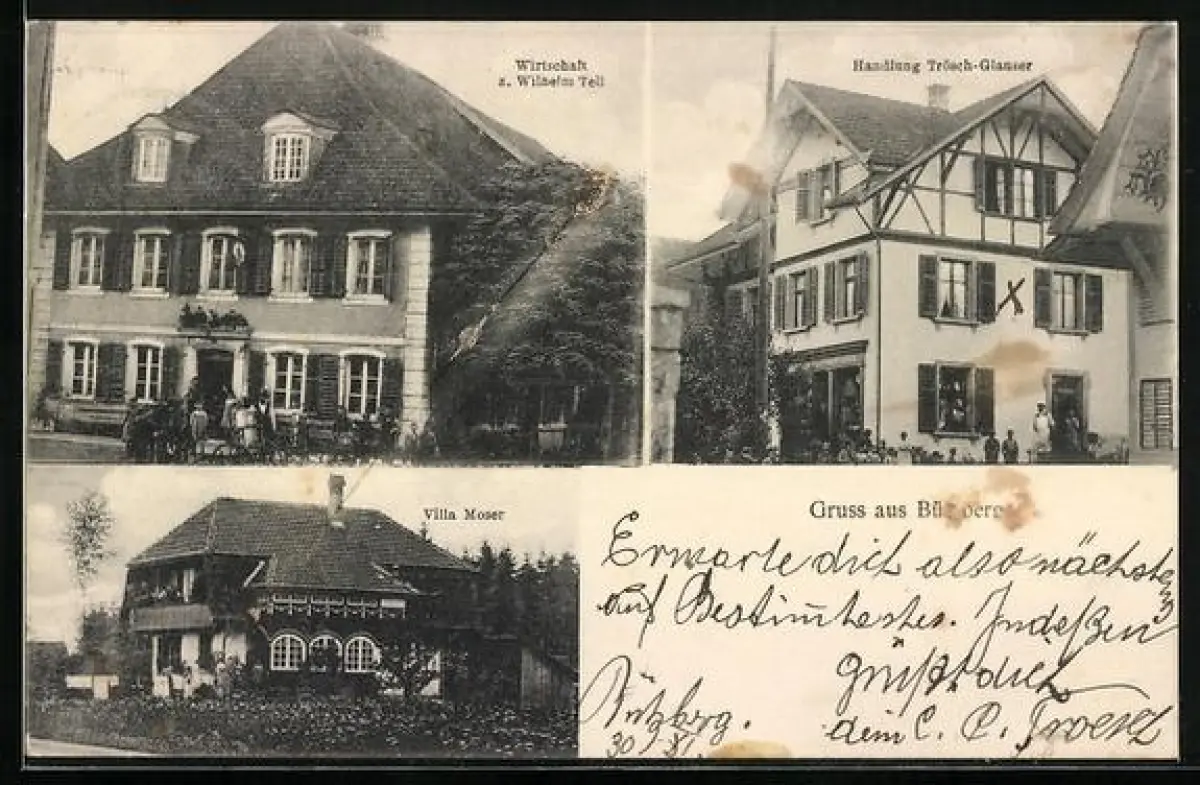 Wirtschaft
z. Wilhelm Tell
Handlung Trösch-Glauser
Villa Moser
Gruss aus Bützberg
Erwarte dich also nächsten
auf Bestimtestes. Indeßen
grüßt dich
dein C. C.
Bützberg.
30